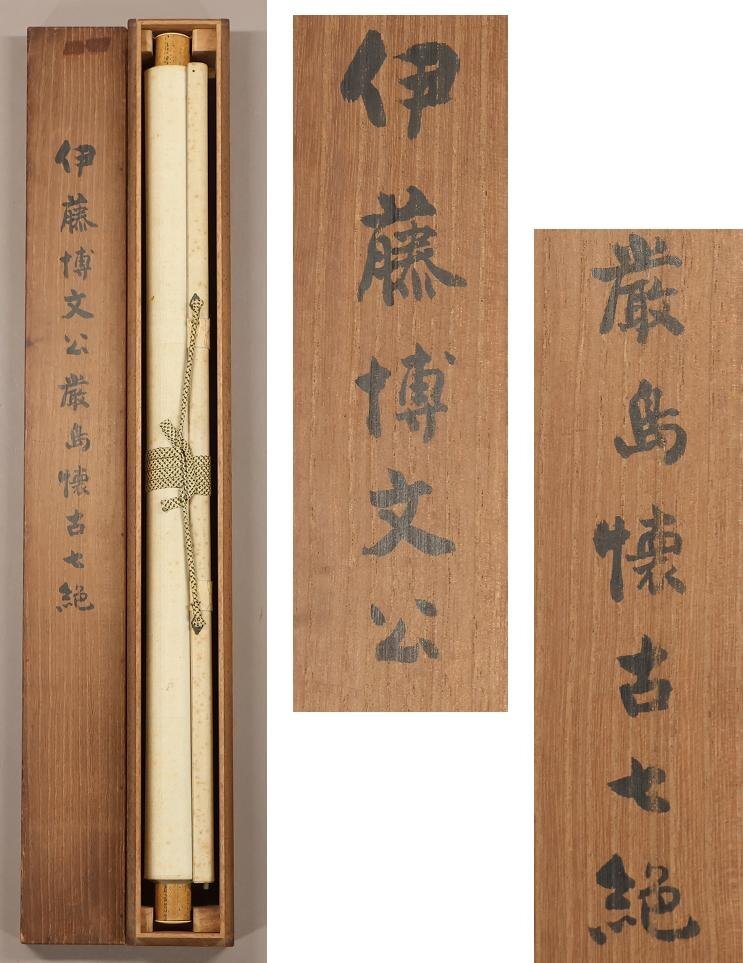 伊藤博文公厳島懐古七絶
伊藤博文公
厳島懐古七絶